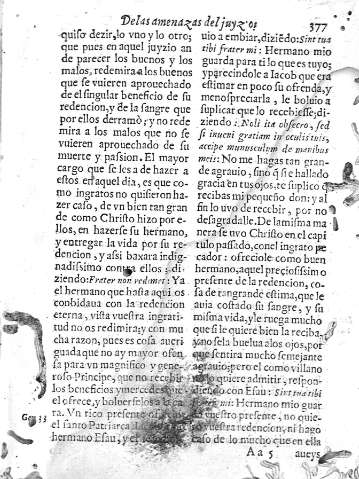 De las amenazas del juyzio. 377
quiso dezir, lo vno y lo otro;
que pues en aquel juyzio an
de parecer los buenos y los
malos, redemira a los buenos
que se vuieren aprouechado
del singular beneficio de su
redencion, y de la sangre que
por ellos derramò; y no rede
mira a los malos que no se
vuieren aprouechado de su
muerte y passion. El mayor
cargo que se les a de hazer a
estos en aquel dia, es que co-
mo ingratos no quisieron ha-
zer caso, de vn bien ran gran
de como Christo hizo por e-
llos, en hazerse su hermano,
y entregar la vida por su re-
dencion, y assi baxara indig-
nadissimo contra ellos: di-
ziendo: Frater non redemet: Ya
el hermano que hasta aqui os
conbidaua con la redencion
eterna, vista vuestra ingrati-
tud no os redimira; y con mu
cha razon, pues es cosa aueri
guada que no ay mayor ofen-
sa para vn magnifico y gene-
roso Principe, que no recebir
los beneficios y mercedes que
el ofrece, y boluerselos a la ca
ra. Vn rico presente
Gen. 33
el santo Patriarca
hermano Esau, y el
uio a embiar, diziẽdo: Sint tua
tibi frater mi: Hermano mio
guarda para ti lo que es tuyo;
y pareciendole a Iacob que era
estimar en poco su ofrenda, y
menospreciarla, le boluio a
suplicar que lo recebiesse; di-
ziendo: Noli ita obsecro, sed
si inueni gratiam in oculis tuis,
accipe munusculum de manibus
meis: No me hagas tan gran-
de agrauio, sino q̃ si e hallado
gracia en tus ojos, te suplico q̃
recibas mi pequeño don: y al
fin lo uvo de recebir, por no
desagradalle. De la misma ma
nera se uvo Christo en el capi
tulo passado, con el ingrato pe
cador: ofreciole como buen
hermano, aquel preciosissimo
presente de la redencion, co-
sa de ran grande estima, que le
auia costado su sangre, y su
misma vida, y le ruega mucho
que si le quiere bien la reciba,
y no se la buelua a los ojos, por
que sentira mucho semejante
agrauio; pero el como villano
no lo quiere admitir, respon-
diendo con Esau: Sint tua tibi
frater mi: Hermano mio guar
da vuestro presente, no quie-
ro vuestra redencion, ni hago
caso de lo mucho que en ella
A a 5 aueys